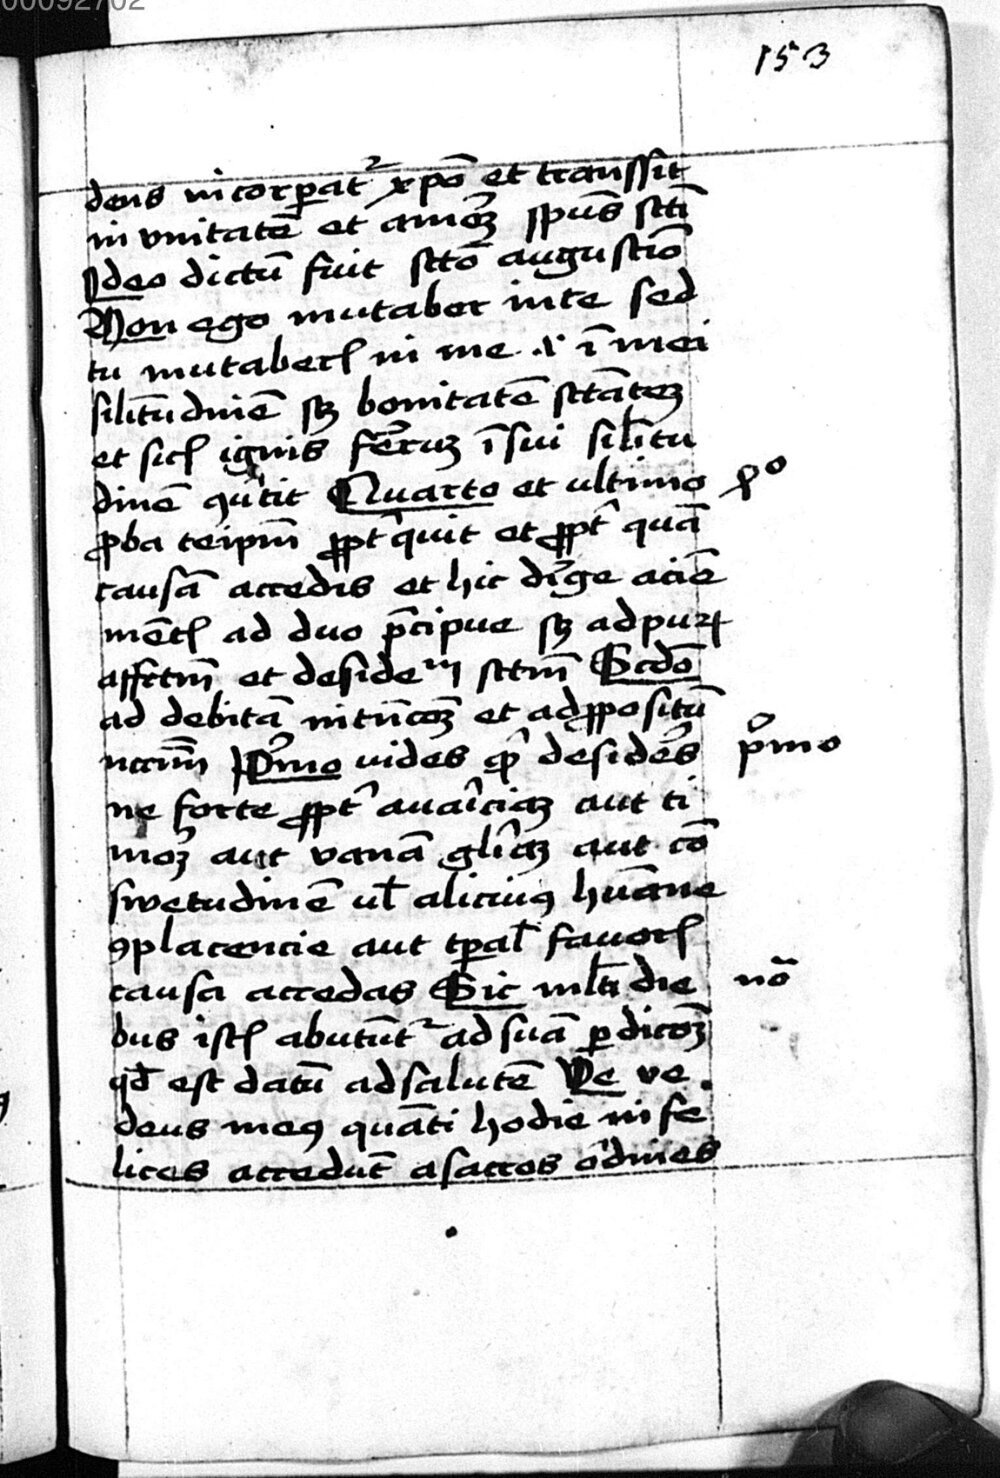 00092702
153
dens incorpat᷑ xpō et transsit
in vnitatē et amoꝝ spūs scti
Ideo dictū fuit sctō augustīo
Non ego mutabor in te sed
tu mutaberꝭ in me .i. ī mei
silitudinē sꝫ bonitatē sctāteꝫ
et sicꝭ ignis ferrūꝫ ī sui silitu
dinē ꝯutit Quarto et ultimo
ꝓba teipm̄ ꝓpt quit et ꝓpt quā
causā accedis et hic dirige aciē
mētꝭ ad duo pͥncipue sꝫ ad puꝝ
affctm̄ et desideꝝ sctm̄ Scdō
ad debitā intēcoꝫ et ad ꝓpositū
nccīm Pͥmo vides qͥ desides
ne forte ꝓpt avaͥciaꝫ aut ti
moꝝ aut vanā glīaꝫ aut cō
swetudinē vl̄ alicuiꝰ hūane
ꝯplacencie aut tꝑal̄ fauorꝭ
causa accedas Sic ml̄ti die
bus istꝭ abutūt᷑ ad suā ꝑdicoꝫ
qd̄ est datū ad salutē Ve ve
deus meꝰ quāti hodie infe
lices accedūt a sacros ordines
4º
pͥmo
nō